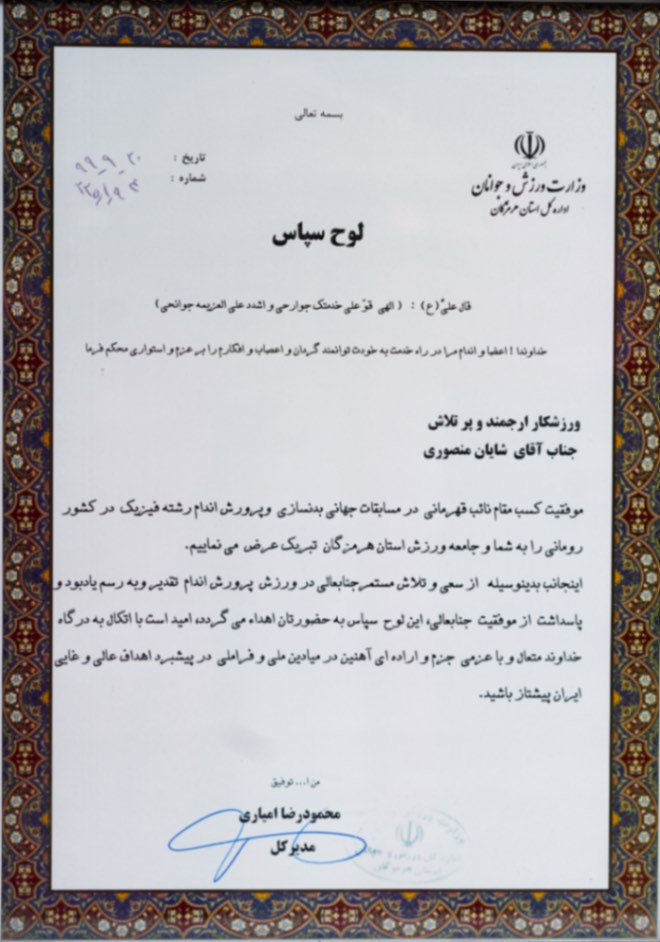 بسمه تعالی
جمهوری اسلامی ایران
وزارت ورزش و جوانان
اداره کل استان هرمزگان
تاریخ : ۹۹_۹_۲۰
شماره :
لوح سپاس
قال علیّ(ع) : (الهی قوّ علی خدمتک جوارحی و اشدد علی العزیمه جوانحی)
خداوندا ! اعضا و اندام مرا در راه خدمت به خودت توانمند گردان و اعصاب و افکارم را بر عزم و استواری محکم فرما
ورزشکار ارجمند و پر تلاش
جناب آقای شایان منصوری
موفقیت کسب مقام نائب قهرمانی در مسابقات جهانی بدنسازی وپرورش اندام رشته فیزیک در کشور
رومانی را به شما و جامعه ورزش استان هرمزگان تبریک عرض می نماییم.
اینجانب بدینوسیله از سعی و تلاش مستمرجنابعالی در ورزش پرورش اندام تقدیر وبه رسم یادبود و
پاسداشت از موفقیت جنابعالی، این لوح سپاس به حضورتان اهداء می گردد، امید است با اتکال به درگاه
خداوند متعال و با عزمی جزم و اراده ای آهنین در میادین ملی و فراملی در پیشبرد اهداف عالی و غایی
ایران پیشتاز باشید.
من ا... توفیق
محمودرضا امیاری
مدیرکل
استان هرمزگان